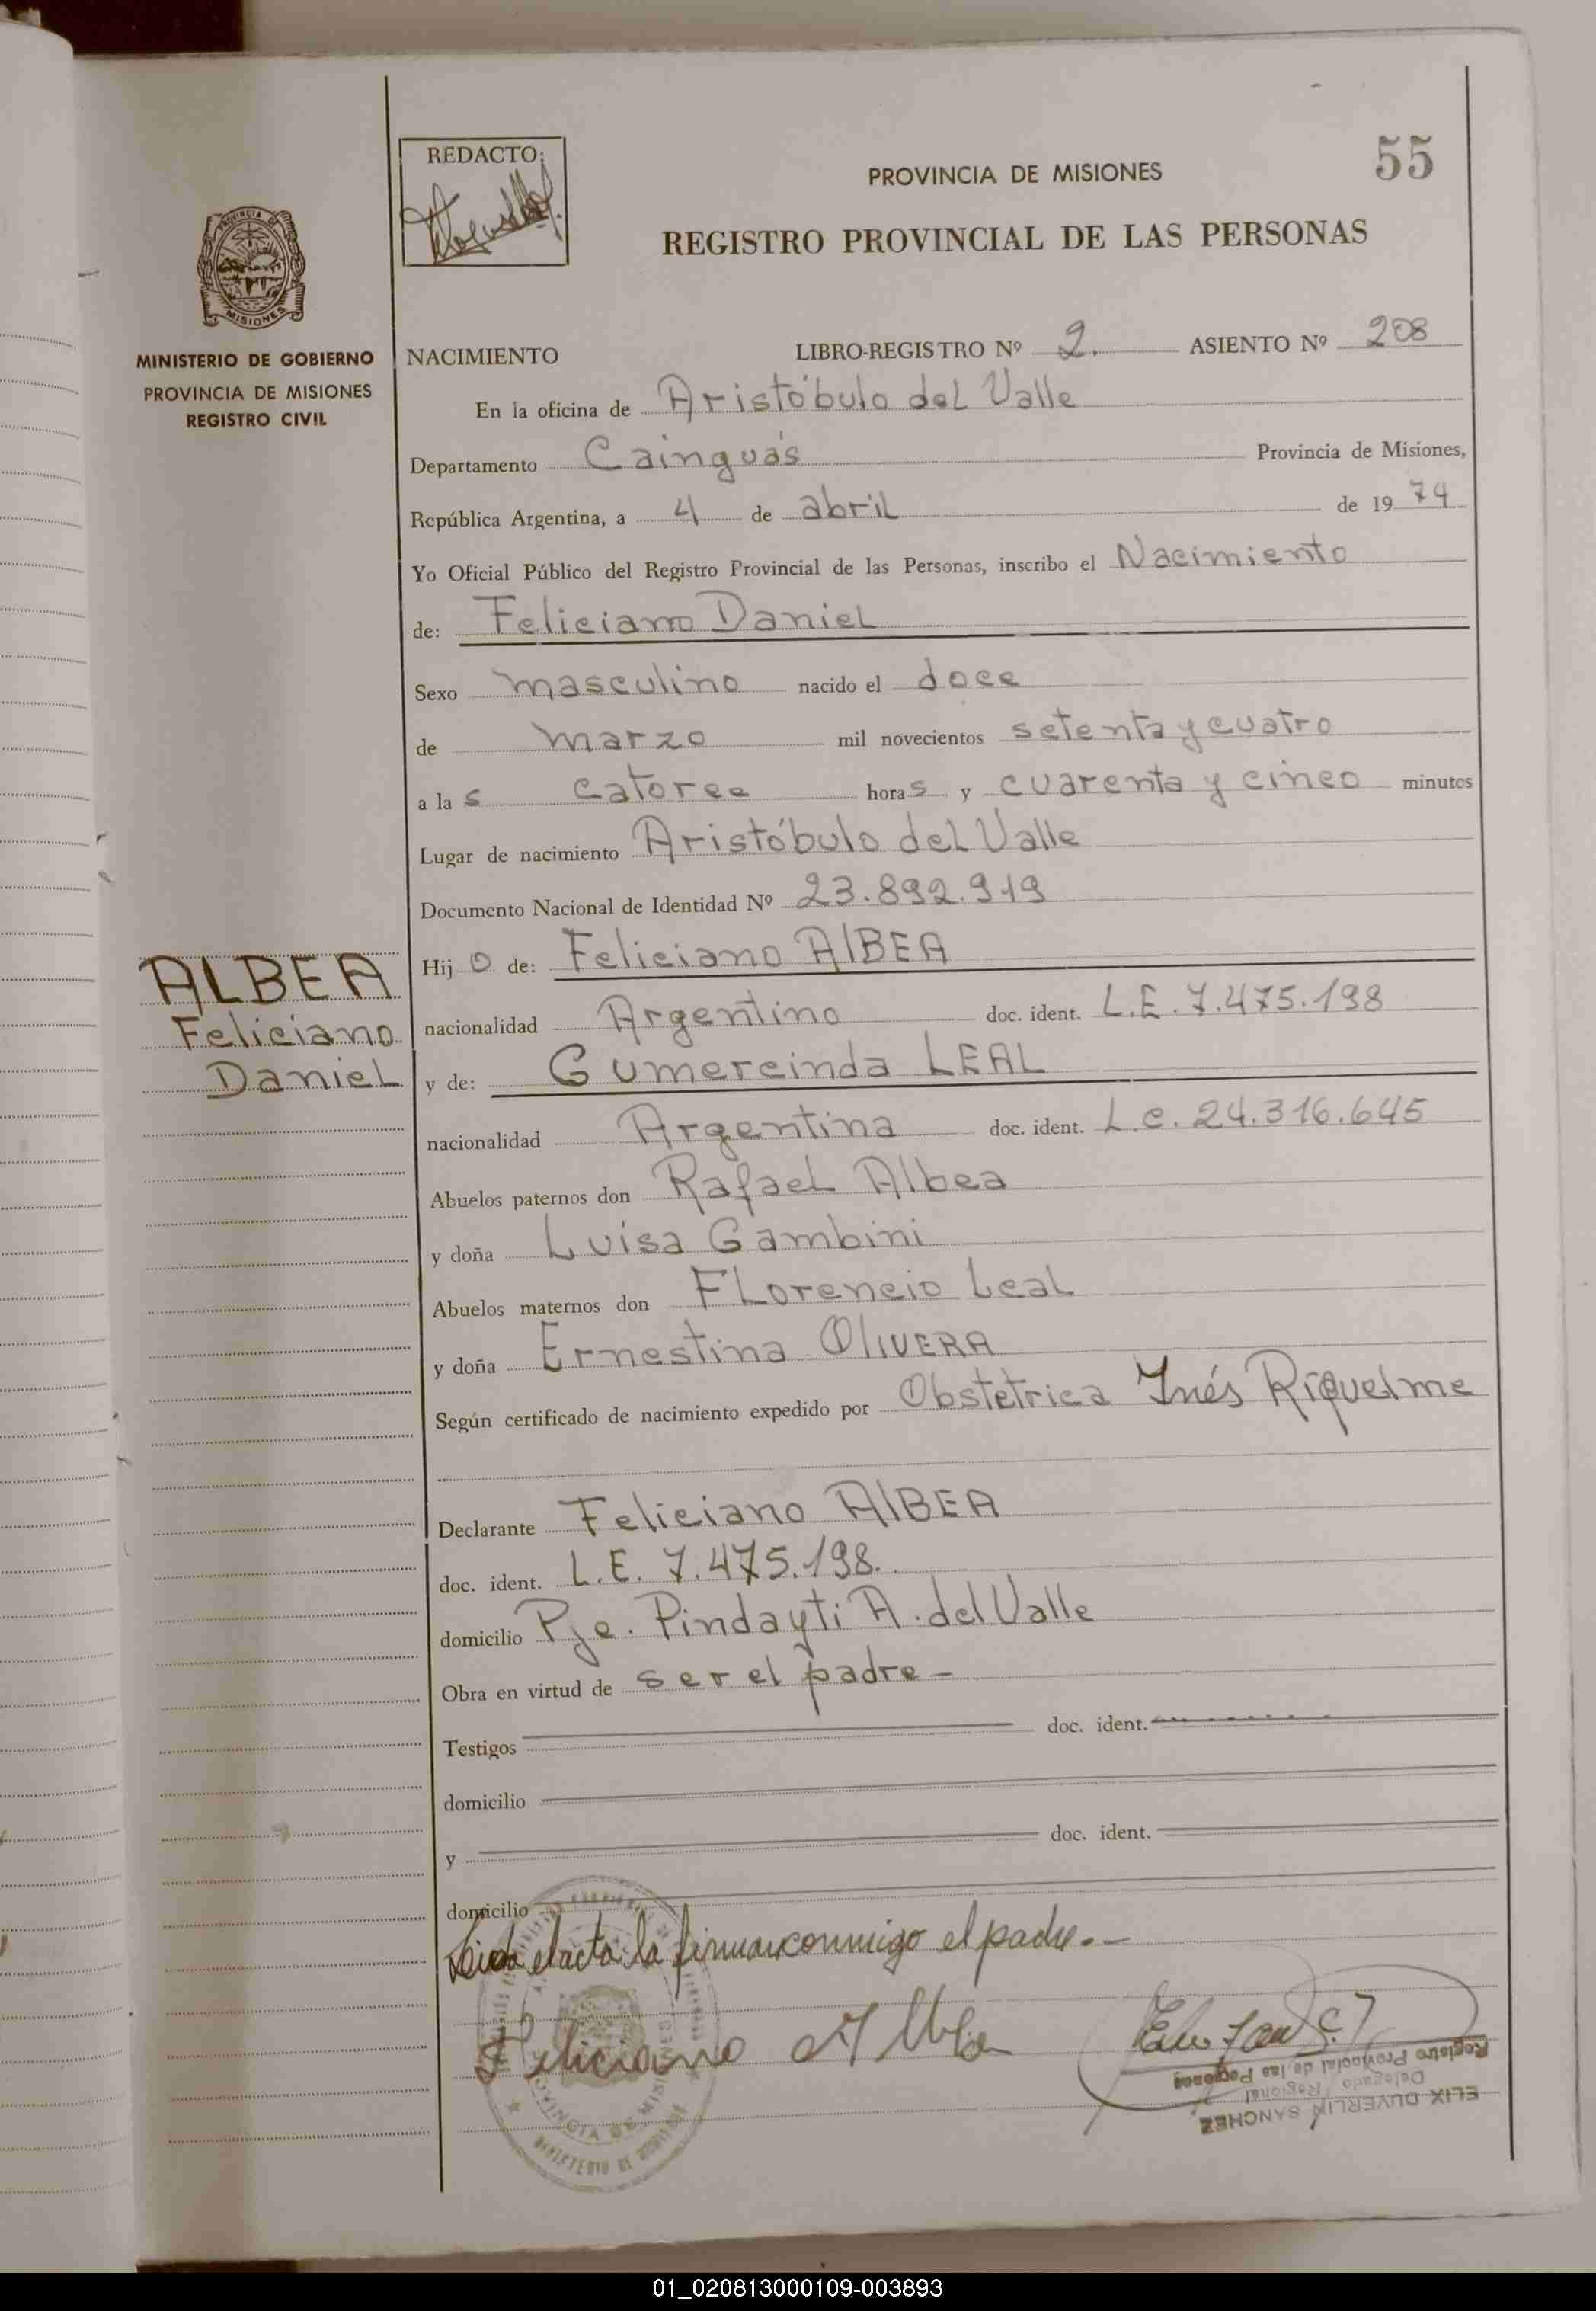 55
REDACTO:
PROVINCIA DE MISIONES
REGISTRO PROVINCIAL DE LAS PERSONAS
MISIONES
MINISTERIO DE GOBIERNO
PROVINCIA DE MISIONES
REGISTRO CIVIL
NACIMIENTO LIBRO-REGISTRO Nº 2. ASIENTO Nº 208
En la oficina de Aristóbulo del Valle
Departamento Cainguás Provincia de Misiones,
República Argentina, a 4 de abril de 1974
Yo Oficial Público del Registro Provincial de las Personas, inscribo el Nacimiento
de: Feliciano Daniel
Sexo masculino nacido el doce
de marzo mil novecientos setenta y cuatro
a las catorce horas y cuarenta y cinco minutos
Lugar de nacimiento Aristóbulo del Valle
Documento Nacional de Identidad Nº 23.892.919
Hijo de: Feliciano AlBEA
nacionalidad Argentino doc. ident. L.E. 7.475.198
y de: Gumercinda LEAL
nacionalidad Argentina doc. ident. L.C. 24.316.645
Abuelos paternos don Rafael Albea
y doña Luisa Gambini
Abuelos maternos don FLorencio Leal
y doña Ernestina OlIVERA
Según certificado de nacimiento expedido por Obstetrica Inés Riquelme
ALBEA
Feliciano
Daniel
Declarante Feliciano AlBEA
doc. ident. L.E. 7.475.198.
domicilio Pje. Pindayti A. del Valle
Obra en virtud de ser el padre -
Testigos doc. ident.
domicilio
y doc. ident.
domicilio
Leida el acta la firma conmigo el padre.-
Feliciano Albea
Registro Provincial de las Personas
Delegado Regional
ELIX DUVERLIN SANCHEZ
PROVINCIA DE MISIONES
MINISTERIO DE GOBIERNO
01_020813000109-003893